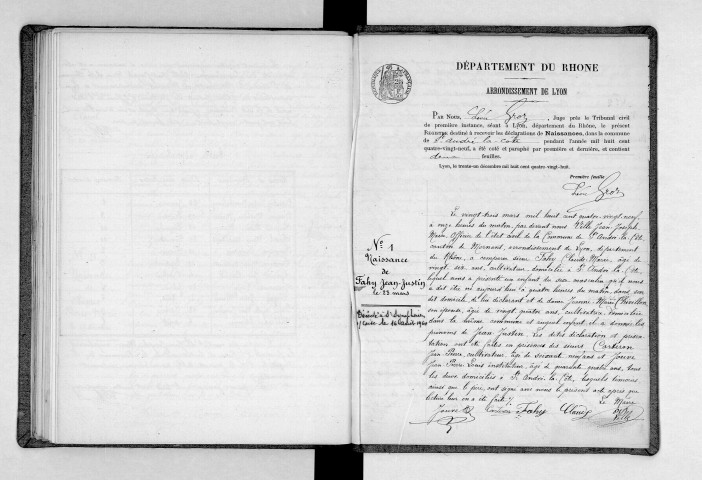 DÉPARTEMENT DU RHONE
ARRONDISSEMENT DE LYON
PAR NOUS, Léon Gros, Juge près le Tribunal civil
de première instance, séant à Lyon, département du Rhône, le présent
REGISTRE destiné à recevoir les déclarations de Naissances, dans la commune
de St André la Côte pendant l'année mil huit cent
quatre-vingt-neuf, a été coté et paraphé par première et dernière, et contient
deux feuilles.
Lyon, le trente-un décembre mil huit cent quatre-vingt-huit.
Première feuille
Léon Gros
No 1
Naissance
de
Fahy Jean-Justin
le 23 mars
Décédé à St Symphorien
le 16 Août
Le vingt trois mars mil huit cent quatre-vingt-neuf
à onze heures du matin, par devant nous Ville Jean Joseph
Marie Officier de l'état civil de la Commune de St André-la-Côte
canton de Mornant, arrondissement de Lyon, département
du Rhône, a comparu sieur Fahy Claude Marie, âgé de
vingt six ans, cultivateur, domicilié à St André la Côte,
lequel nous a présenté un enfant du sexe masculin qu'il nous
a dit être né aujourd'hui à quatre heures du matin, dans son
dit domicile, de lui déclarant et de dame Jeanne Marie
son épouse, âgée de vingt quatre ans, cultivatrice, domiciliée
dans la même commune et auquel enfant il a donné les
prénoms de Jean Justin. Les dites déclaration et présen
tation ont été faites en présence des sieurs
Jean Pierre, cultivateur, âgé de soixante neuf ans et Jouve
Jean Pierre Louis instituteur, âgé de quarante quatre ans, tous
les deux domiciliés à St André la Côte, lesquels témoins
ainsi que le père, ont signé avec nous le présent acte après que
lecture leur en a été faite.
Le Maire
Jouve Fahy Claude
Ville